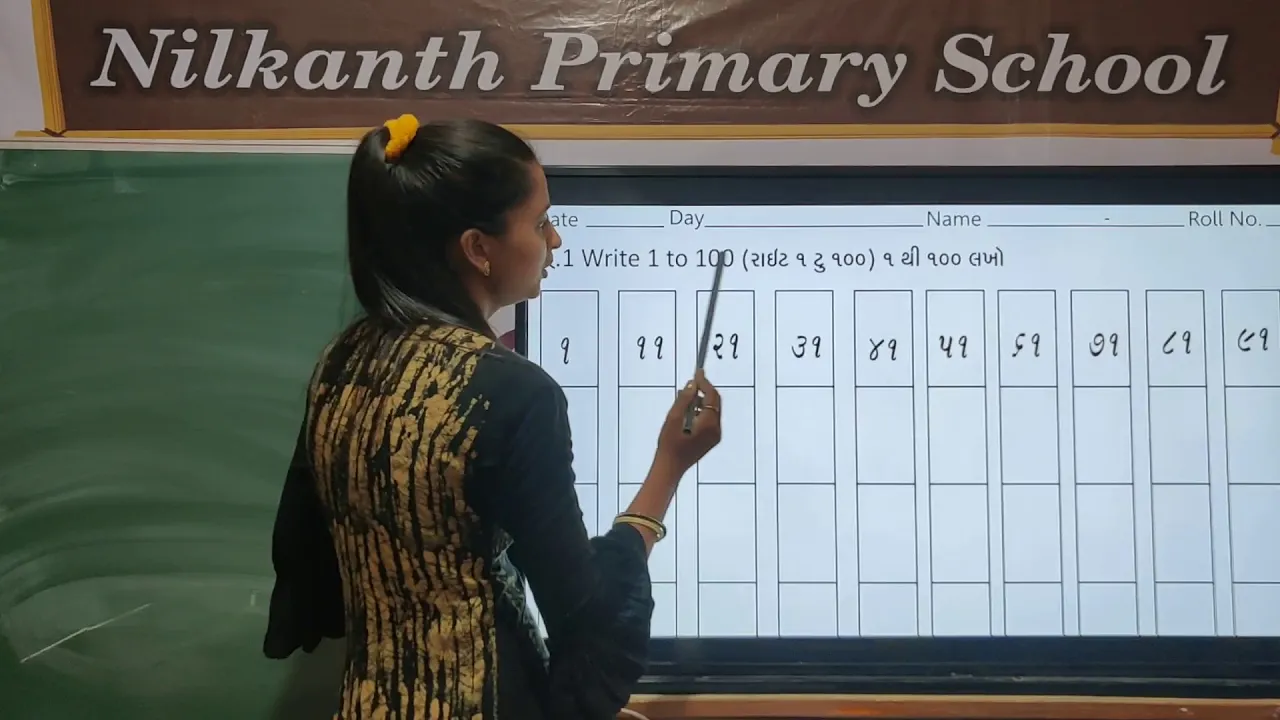 Nilkanth Primary School
ate ______ Day____________________ Name ____________-________ Roll No.__
.1 Write 1 to 100 (રાઈટ ૧ ટુ ૧૦૦) ૧ થી ૧૦૦ લખો
૧ ૧૧ ૨૧ ૩૧ ૪૧ ૫૧ ૬૧ ૭૧ ૮૧ ૯૧